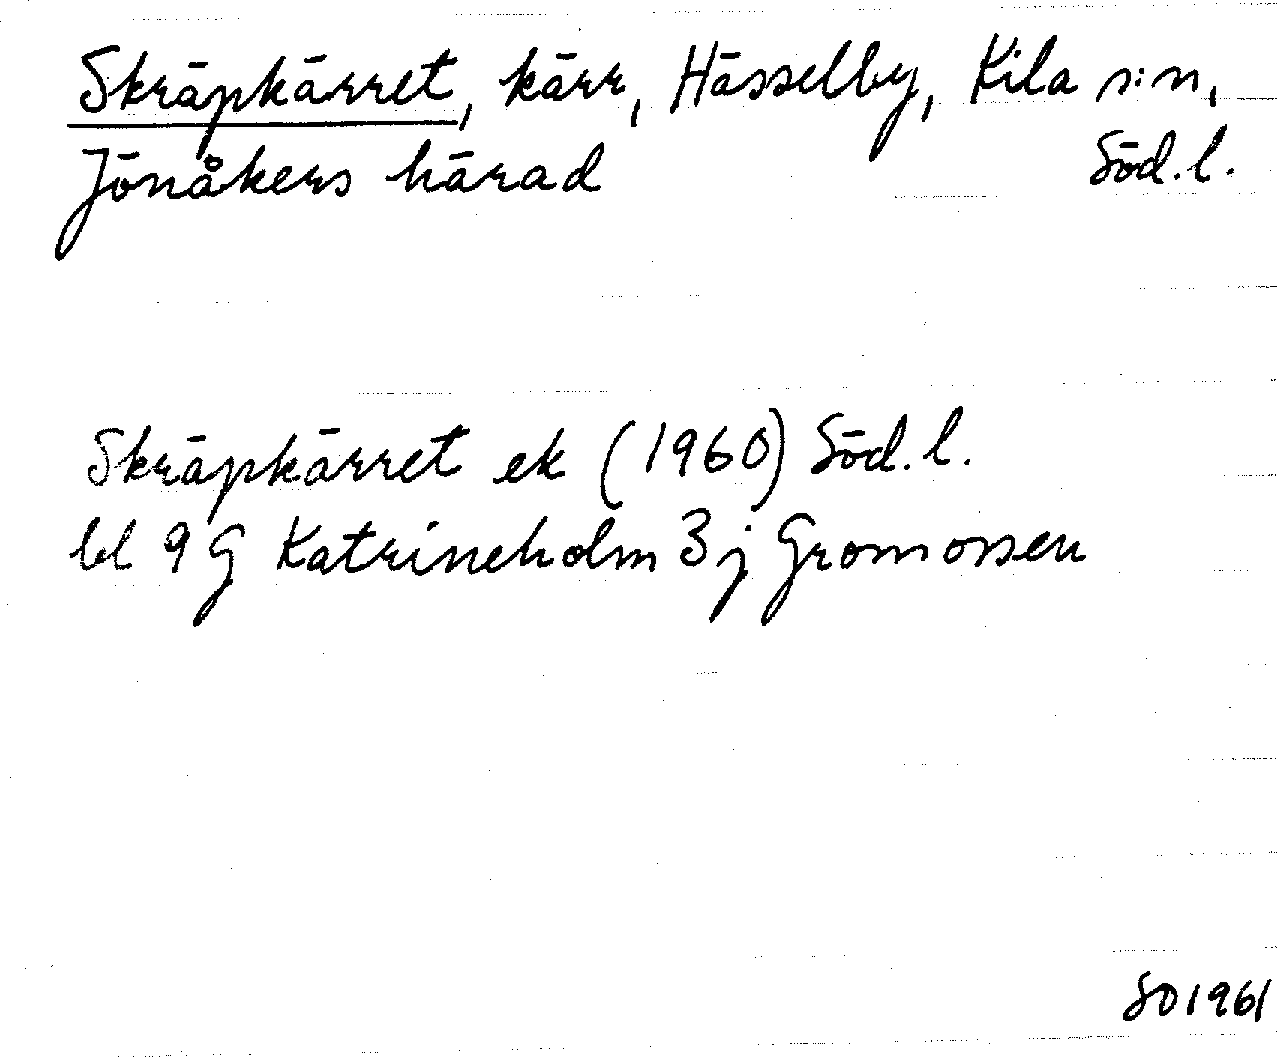 Skräpkärret, kärr, Hässelby, Kila s:n,
Jönåkers härad Söd.l.
Skräpkärret ek (1960) Söd.l.
bl 9G Katrineholm 3j Gromossen
SO 1961